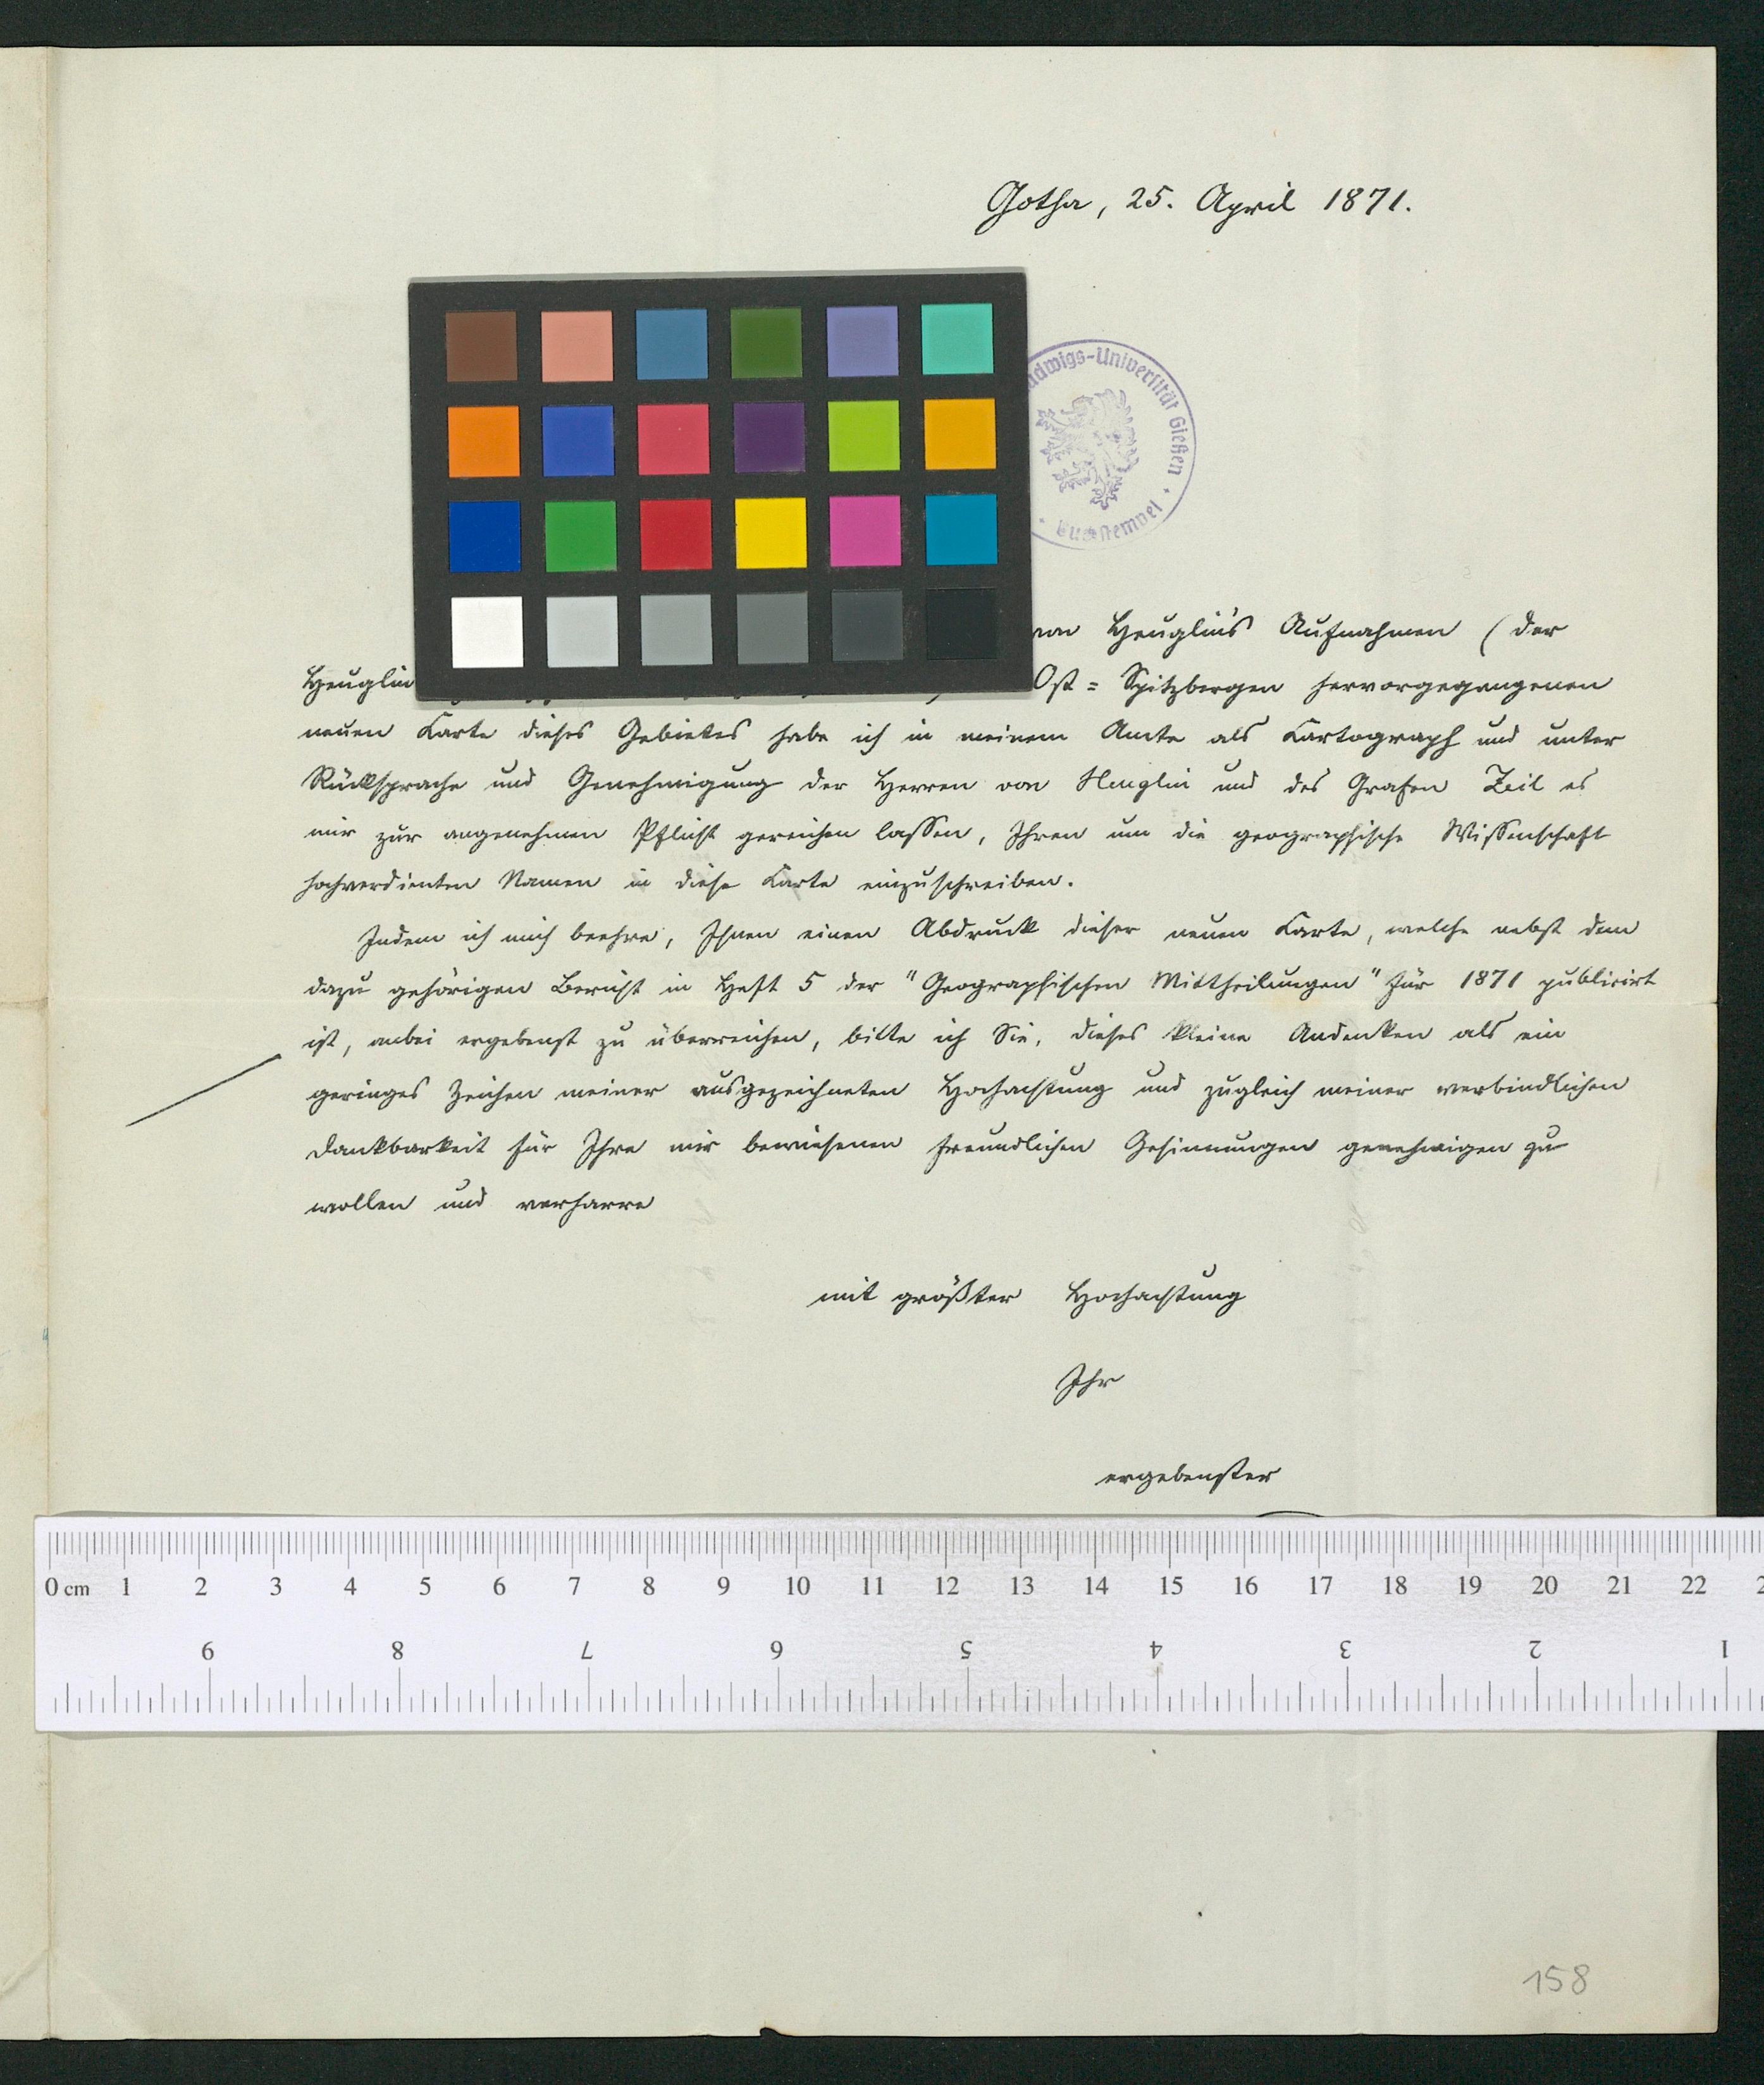 Gotha, 25. April 1871.
Ludwigs-Universität Gießen
von Heuglin's Aufnahmen (der
Heuglin Ost= Spitzbergen hervorgegangenen
neuen Karte dieses Gebietes habe ich in meinem Amte als Kartograph und unter
Rücksprache und Genehmigung der Herren von Heuglin und des Grafen Zeil es
mir zur angenehmen Pflicht gereichen lassen, Ihren um die geographische Wissenschaft
hochverdienten Namen in diese Karte einzuschreiben.
Indem ich mich beehre, Ihnen einen Abdruck dieser neuen Karte, welche nebst dem
dazu gehörigen Bericht in Heft 5 der "Geographischen Mittheilungen" für 1871 publicirt
ist, anbei ergebenst zu überreichen, bitte ich Sie, dieses kleine Andenken als ein
geringes Zeichen meiner ausgezeichneten Hochachtung und zugleich meiner verbindlichen
Dankbarkeit für Ihre mir bewiesenen freundlichen Gesinnungen genehmigen zu
wollen und verharre
mit größter Hochachtung
Ihr
ergebenster
0 cm 1 2 3 4 5 6 7 8 9 10 11 12 13 14 15 16 17 18 19 20 21 22
9 8 7 6 5 4 3 2 1
158